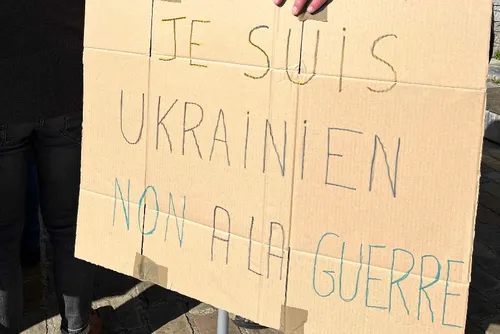 JE SUiS
UKRAiNiEN
NON A LA GUERRE